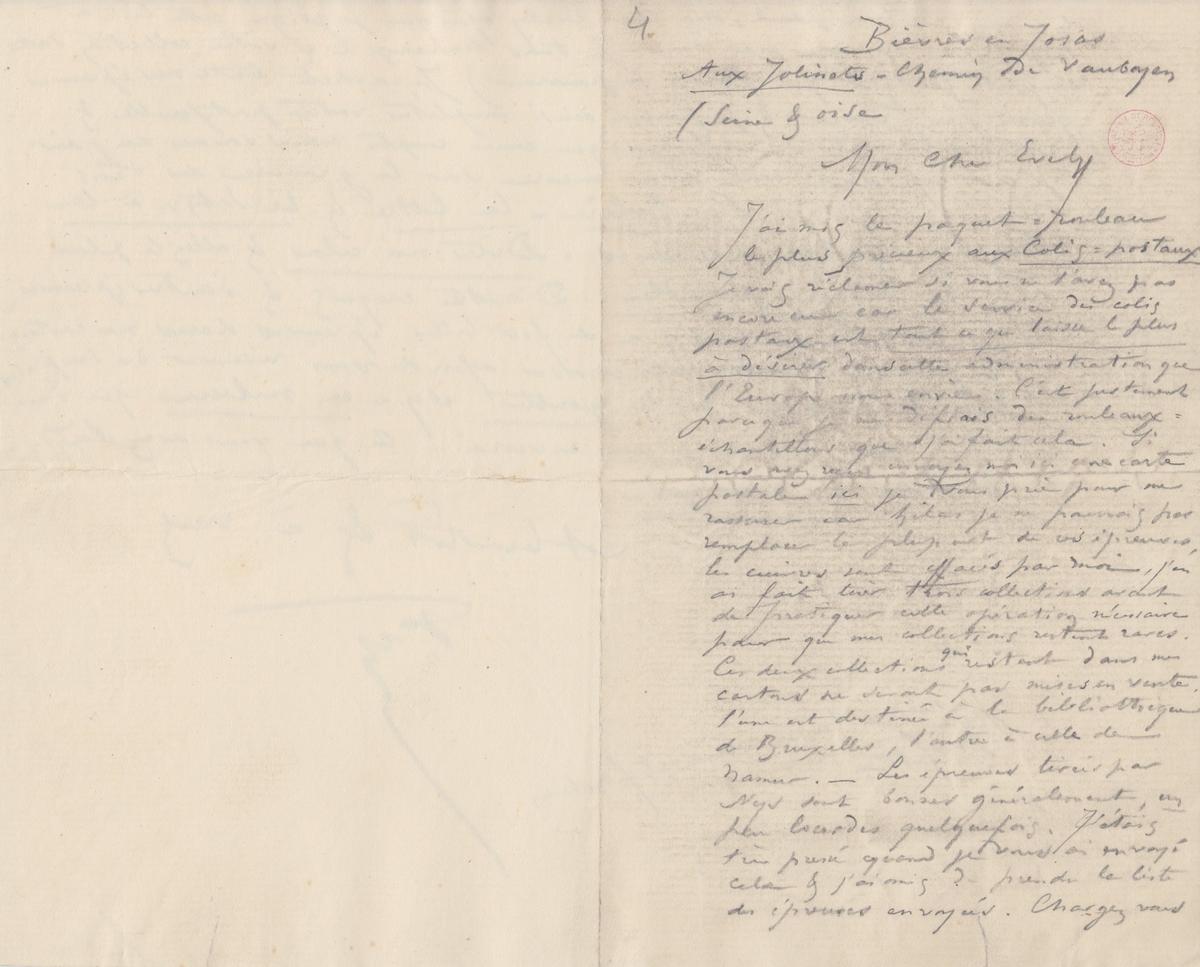 4.
Bièvres en Josas
Aux Jolinets - Chemin De Vauboyen
(Seine & oise
Mon Cher Evely
J'ai mis le paquet = rouleau
le plus précieux aux Colis = postaux
Je vais réclamer si vous ne l'avez pas
encore car le service des colis
postaux est tout ce qui laisse le plus
à désirer dans cette administration que
l'Europe nous envie. C'est justement
parceque je me défiais des rouleaux =
échantillons que j'ai fait cela. Si
vous avez reçu envoyez moi ici une carte
postale ici je vous prie pour me
rassurer car hélas je ne pourrais pas
remplacer la plupart de ces épreuves,
les cuivres sont effacés par moi, j'en
ai fait tirer trois collections avant
de pratiquer cette opération nécessaire
pour que mes collections restent rares.
Ces deux collections qui restent dans mes
cartons ne seront pas mises en vente,
l'une est destinée à la bibliothèque
de Bruxelles, l'autre à celle de
Namur. — Les épreuves tirées par
Nys sont bonnes généralement, un
peu lourdes quelquefois. J'étais
très pressé quand je vous ai envoyé
cela & j'ai omis de prendre la liste
des épreuves envoyées. Chargez vous